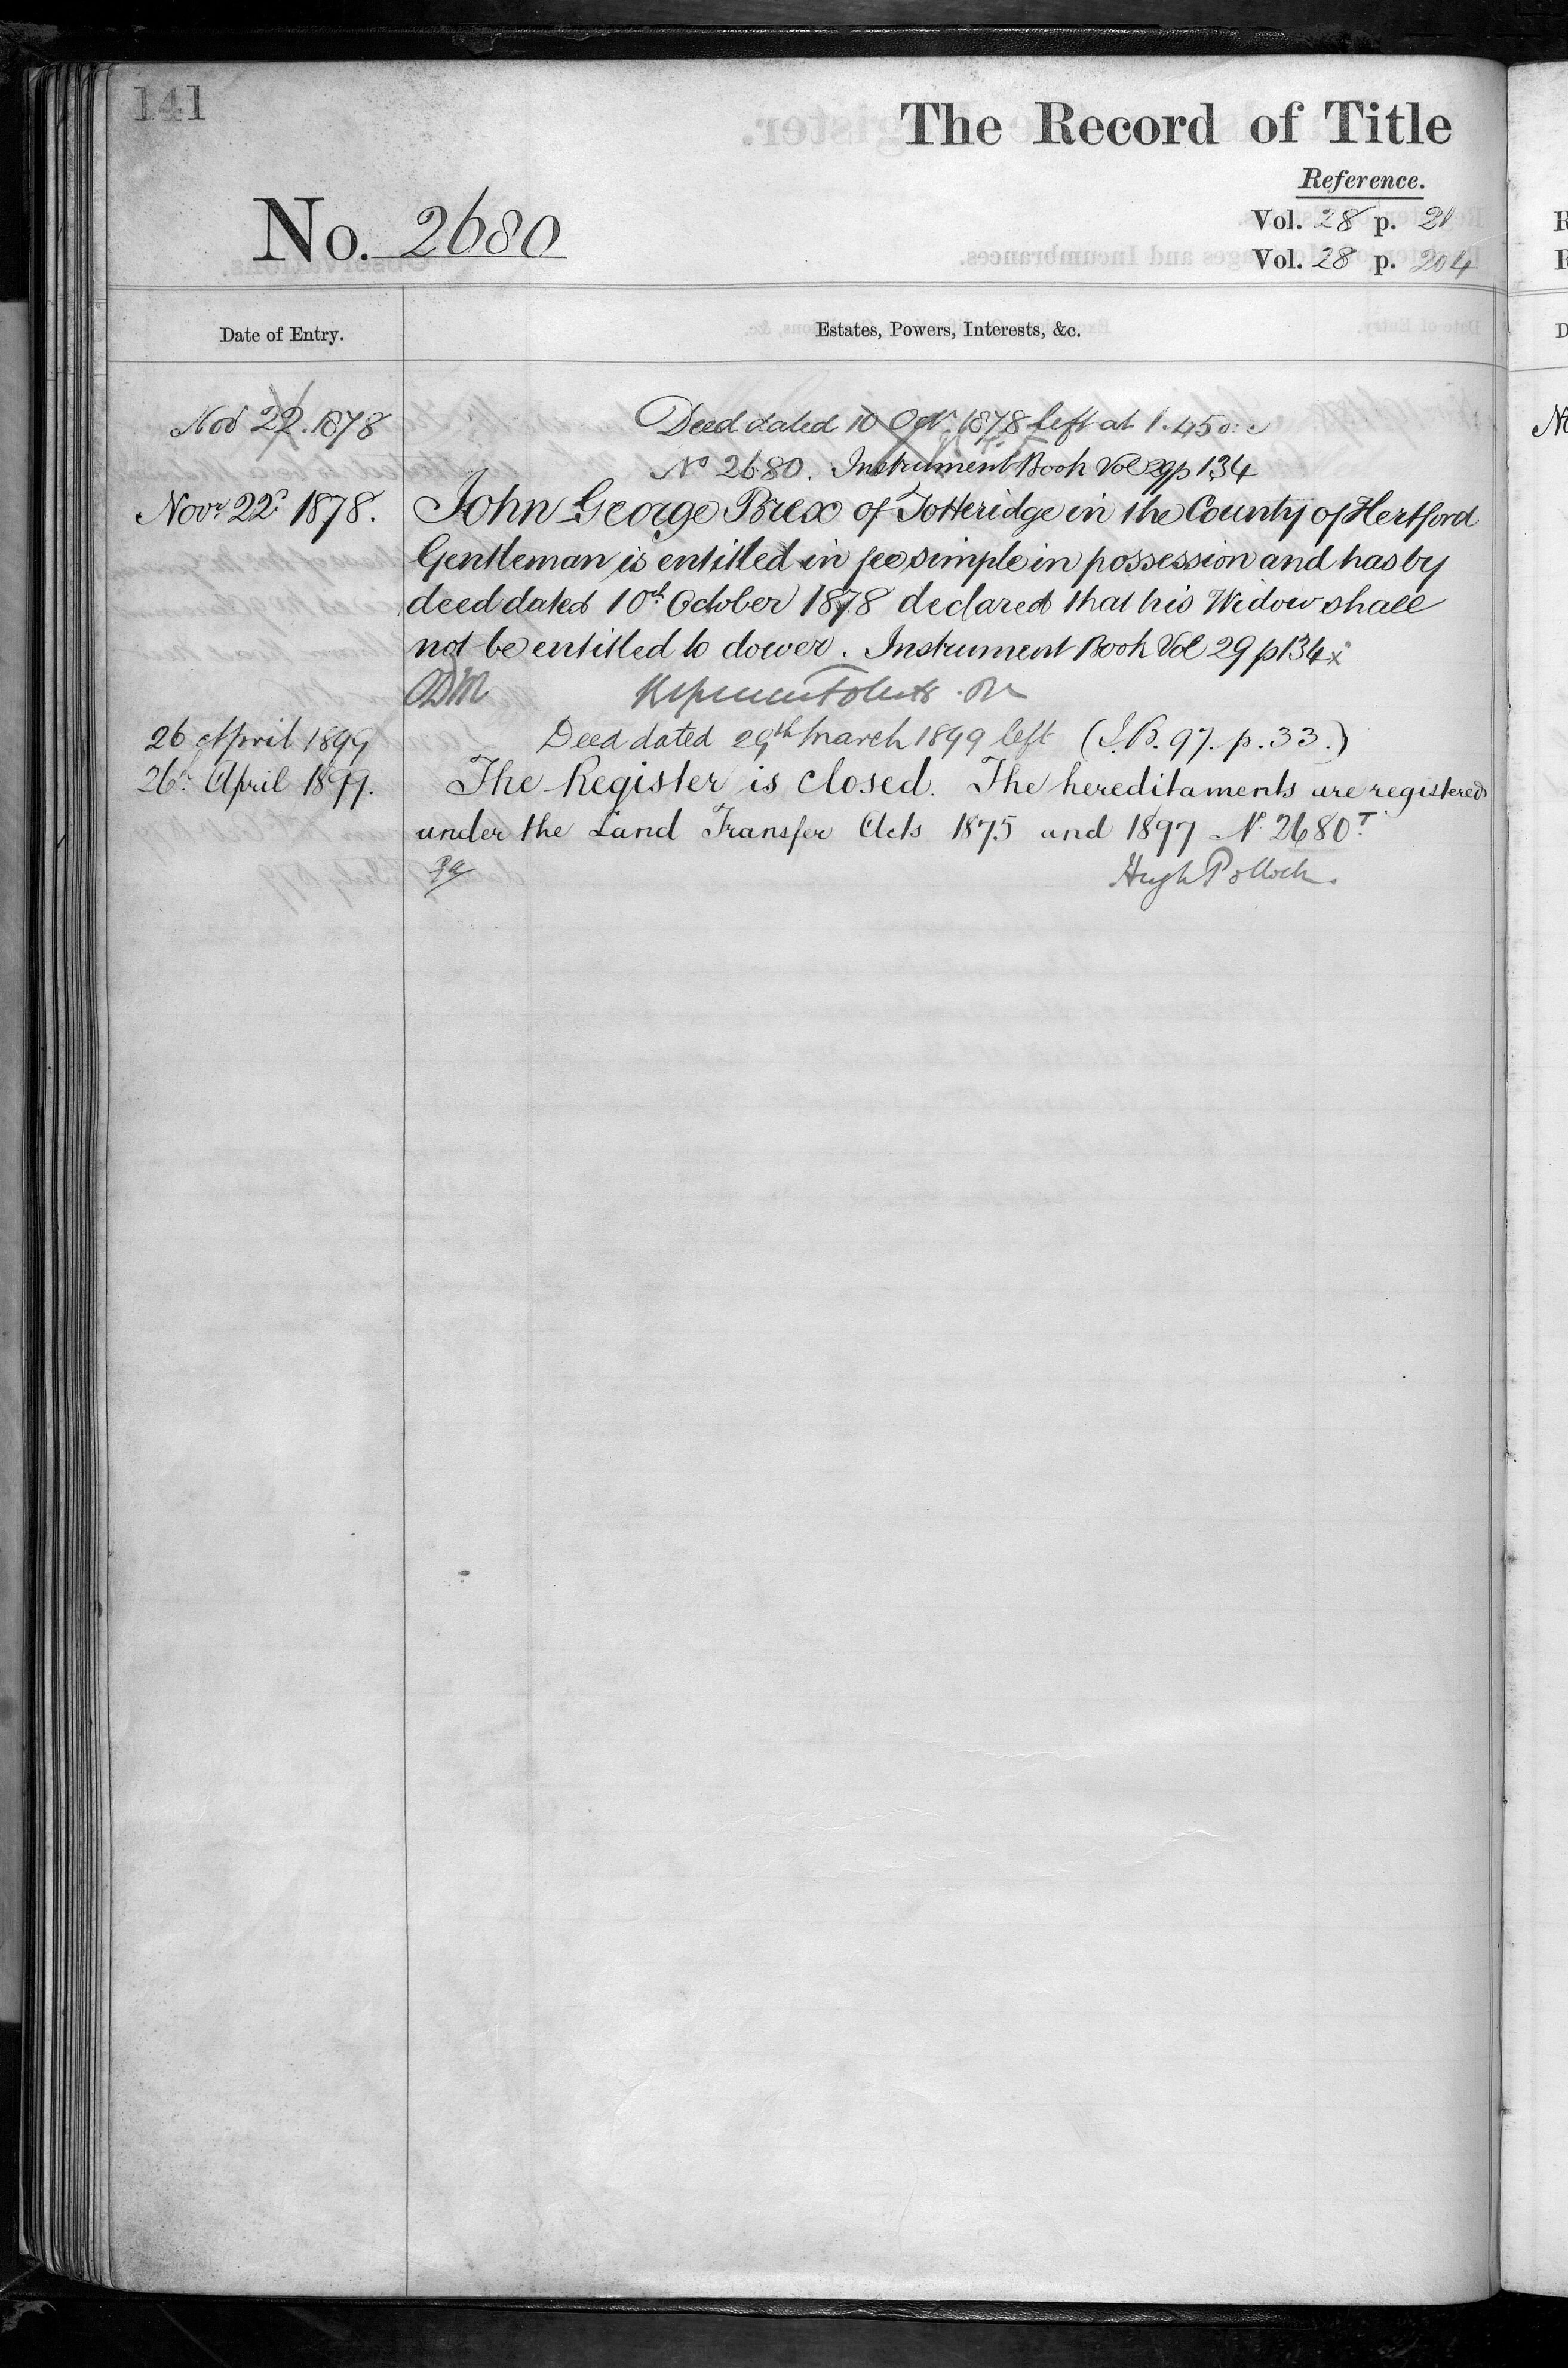 141
The Record of Title
Reference.
No. 2680
Vol. 28 p. 21
Vol. 28 p. 204
Date of Entry.
Estates, Powers, Interests, &c.
Nov 22. 1878
Deed dated 10 Octr. 1878 left at 1.45
No 2680. Instrument Book Vol 29 p 134
Novr 22d 1878.
John George Brex of Totteridge in the County of Hertford
Gentleman is entitled in fee simple in possession and has by
deed dated 10th October 1878 declared that his Widow shall
not be entitled to dower. Instrument Book Vol 29 p 134
26 April 1899
Deed dated 29th March 1899 left (I.B. 97. p. 33.)
26. April 1899.
The Register is closed. The hereditaments are registered
under the Land Transfer Acts 1875 and 1897 No 2680T.
Hugh Pollock.